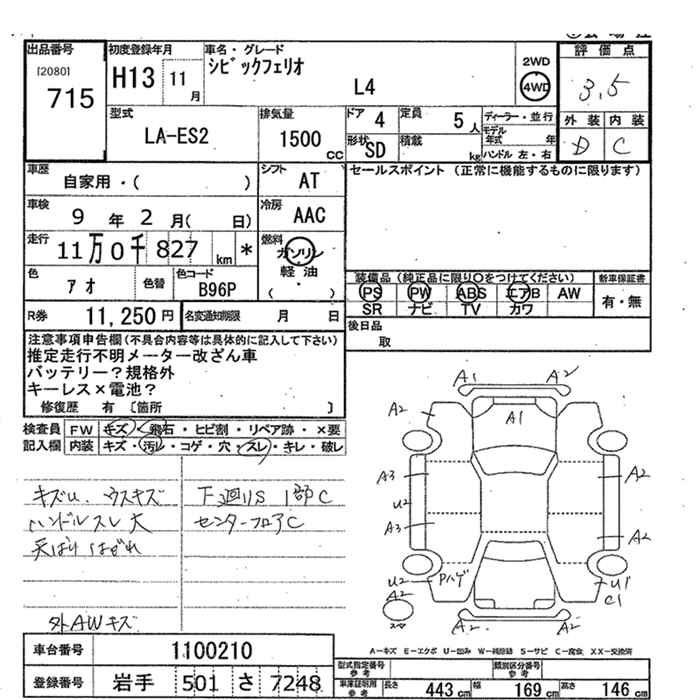 出品番号
[2080]
715
初度登録年月
H13 11月
車名・グレード
シビックフェリオ
L4
2WD
4WD
評価点
3.5
外装 内装
D C
型式
LA-ES2
排気量
1500 cc
ドア 4
定員 5 人
形状 SD
積載 kg
ディーラー・並行
モデル年式 年
ハンドル 左・右
車歴
自家用・( )
シフト AT
セールスポイント (正常に機能するものに限ります)
車検
9 年 2 月( 日)
冷房 AAC
走行
11万0千827 km *
燃料
ガソリン
軽油
・
( )
色
アオ
色替
色コード
B96P
装備品 (純正品に限り○をつけてください)
PS PW ABS エアB AW
SR ナビ TV カワ
新車保証書
有・無
R券 11,250円
名変通知期限 月 日
後日品
取
注意事項申告欄 (不具合内容等は具体的に記入して下さい)
推定走行不明メーター改ざん車
バッテリー?規格外
キーレス×電池?
修復歴 有 [箇所 ]
検査員
記入欄
FW キズ・飛石・ヒビ割・リペア跡・×要
内装 キズ・汚レ・コゲ・穴・スレ・キレ・破レ
キズU ウスキズ
ハンドルスレ大
天ばりはがれ
外AWキズ
下廻りS 1部C
センターフロアC
A1 A2
A2 A1
A3 A2
U2
A3 A2
U2 Pハゲ U1
A2 C1
A2 A2
A-キズ E-エクボ U-凹み W-補修跡 S-サビ C-腐食 XX-交換済
車台番号 1100210
登録番号 岩手 501 さ 7248
型式指定番号
参考
類別区分番号
参考
車庫証明用
参考
長さ 443 cm 幅 169 cm 高さ 146 cm